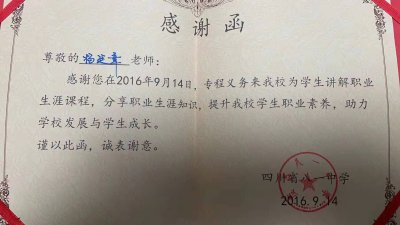 感谢函
尊敬的杨延章 老师：
感谢您在2016年9月14日，专程义务来我校为学生讲解职业
生涯课程，分享职业生涯知识，提升我校学生职业素养，助力
学校发展与学生成长。
谨以此函，诚表谢意。
四川省八一中学
2016.9.14